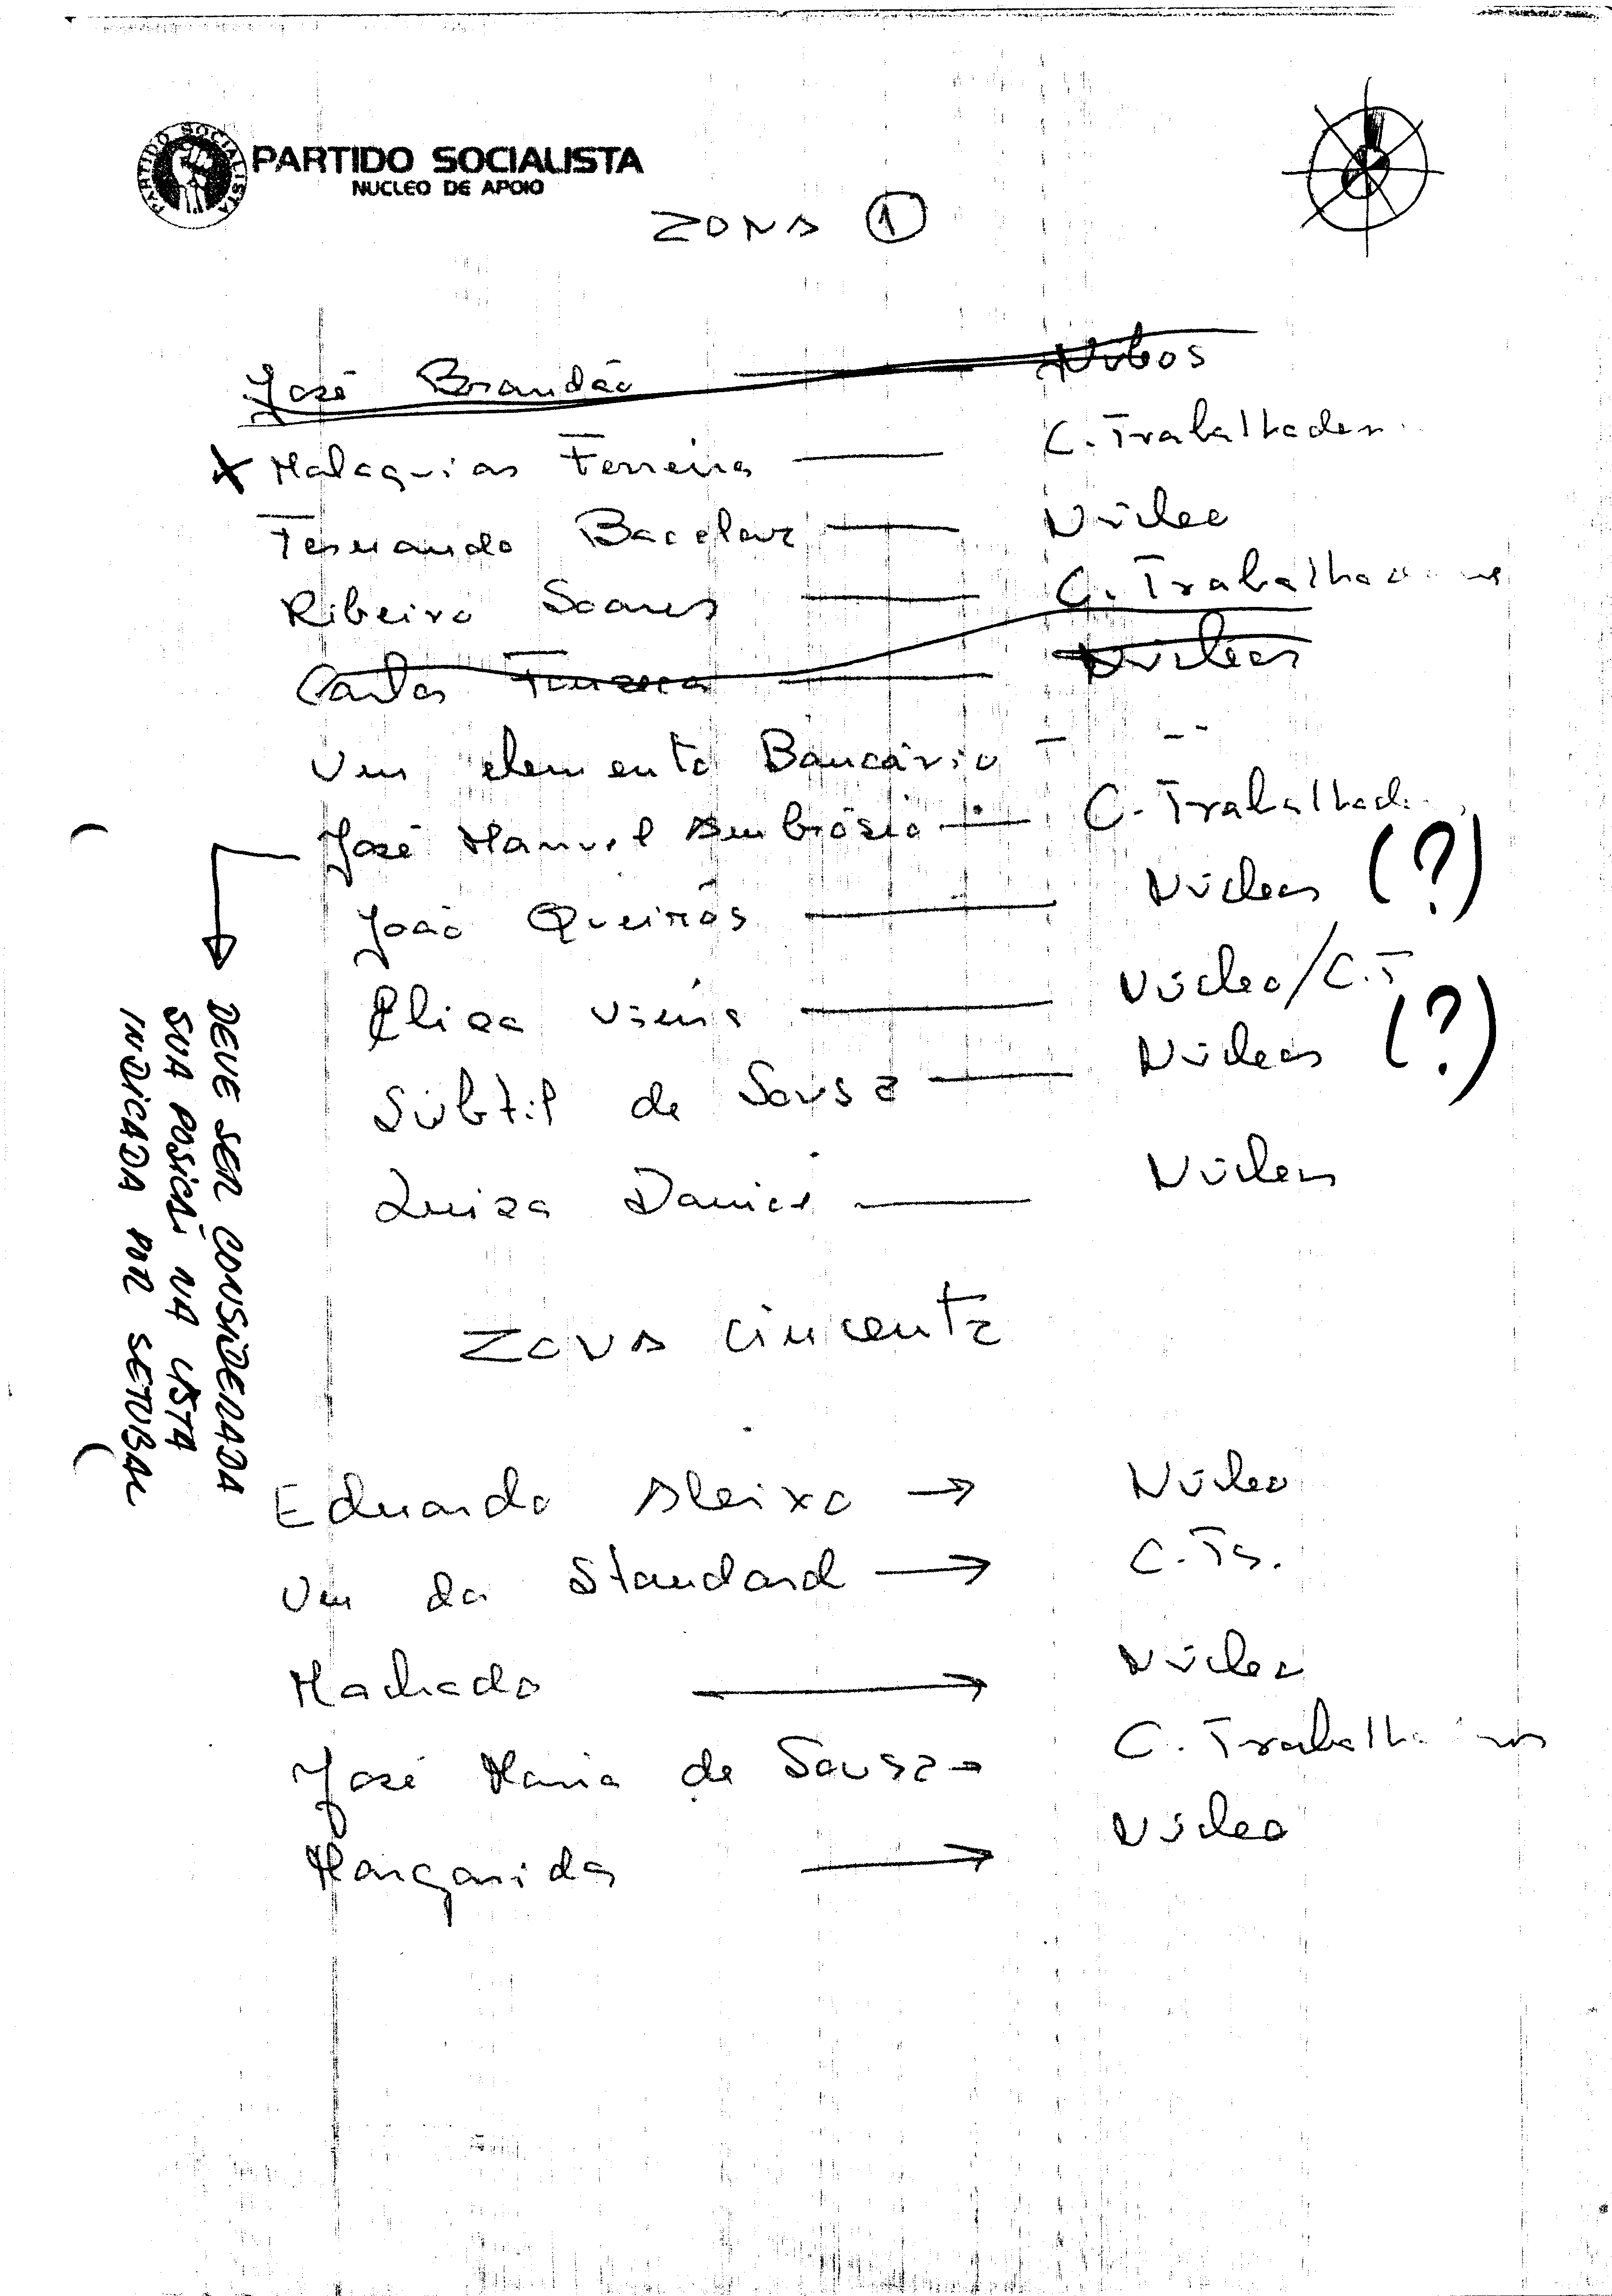 PARTIDO SOCIALISTA
PARTIDO SOCIALISTA
NUCLEO DE APOIO
ZONA 1
José Brandão —— Núcleos
x Malaquias Ferreira —— C. Trabalhador
Fernando Bacelar —— Núcleo
Ribeiro Soares —— C. Trabalhadores
Carlos Fonseca —— Núcleos
Um elemento Bancário — --
José Manuel Ambrósio —— C. Trabalhad
João Queirós —— Núcleos (?)
Elisa —— Núcleo/C.T
Súbtil de Sousa —— Núcleos (?)
Luisa Daniel —— Núcleos
DEVE SER CONSIDERADA
SUA POSIÇÃO NA LISTA
INDICADA POR SETUBAL
ZONA Cinzenta
Eduardo Aleixo → Núcleo
Um da Standard → C.Ts.
Machado → Núcleo
José Maria de Sousa → C. Trabalhadores
Margarida → Núcleo